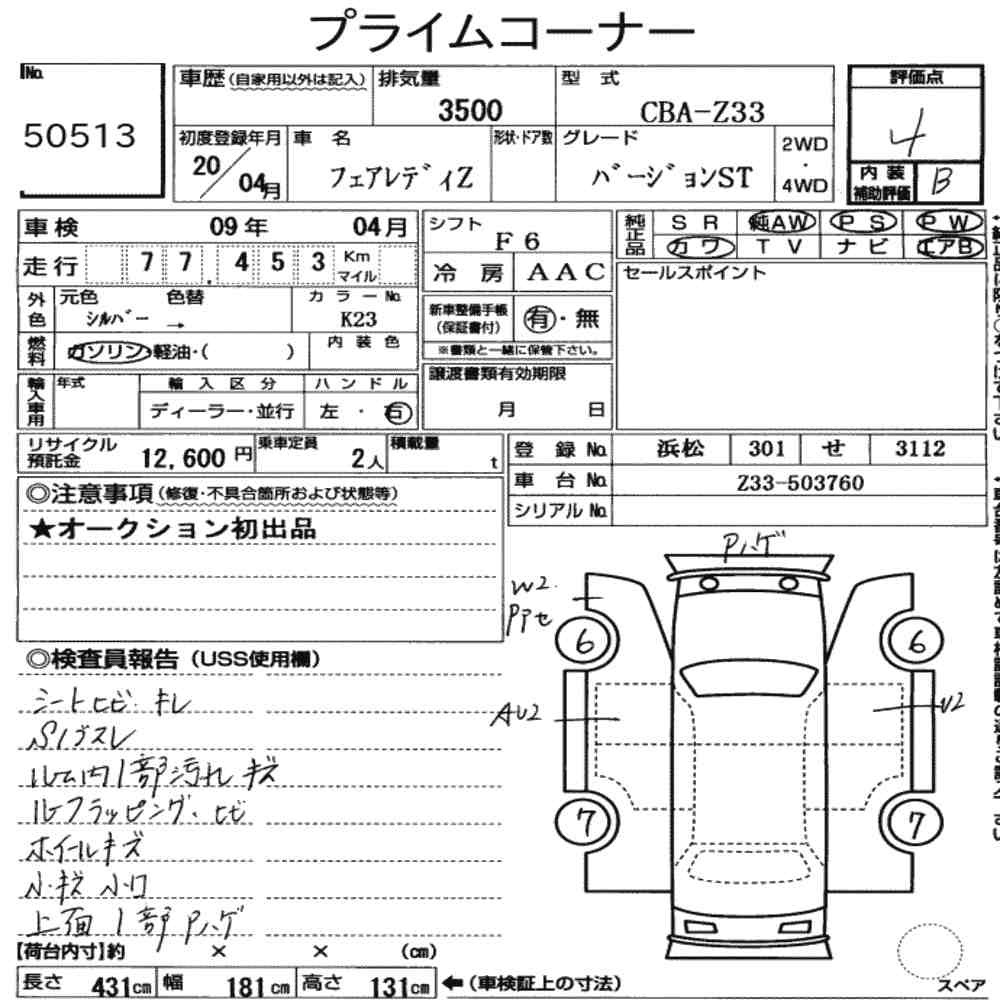 プライムコーナー
No.
50513
車歴 (自家用以外は記入)
排気量
3500
型 式
CBA-Z33
評価点
4
初度登録年月
20/04月
車 名
フェアレディZ
形状・ドア数
グレード
バージョンST
2WD
・
4WD
内 装
補助評価
B
車検 09年 04月
走行 77,453 Km
マイル
外色
元色 色替
シルバー →
カラーNo.
K23
燃料
ガソリン・軽油・( )
内 装 色
輸入車用
年式
輸 入 区 分
ディーラー・並行
ハ ン ド ル
左 ・ 右
シフト
F6
冷 房 AAC
新車整備手帳
(保証書付)
有・無
※書類と一緒に保管下さい。
譲渡書類有効期限
月 日
純正品
SR 純AW PS PW
カワ TV ナビ エアB
セールスポイント
リサイクル
預託金
12,600円
乗車定員
2人
積載量
t
登 録 No. 浜松 301 せ 3112
車 台 No. Z33-503760
シリアル No.
◎注意事項 (修復・不具合箇所および状態等)
★オークション初出品
◎検査員報告 (USS使用欄)
シートヒビ キレ
S/ゴスレ
ルーム内1部汚れ キズ
ルーフラッピング・ヒビ
ホイールキズ
小キズ 小凹
上面 1部 Pハゲ
Pハゲ
W2
Pアセ
AU2
U2
6
6
7
7
【荷台内寸】約 × × (cm)
長さ 431cm 幅 181cm 高さ 131cm ←(車検証上の寸法)
スペア